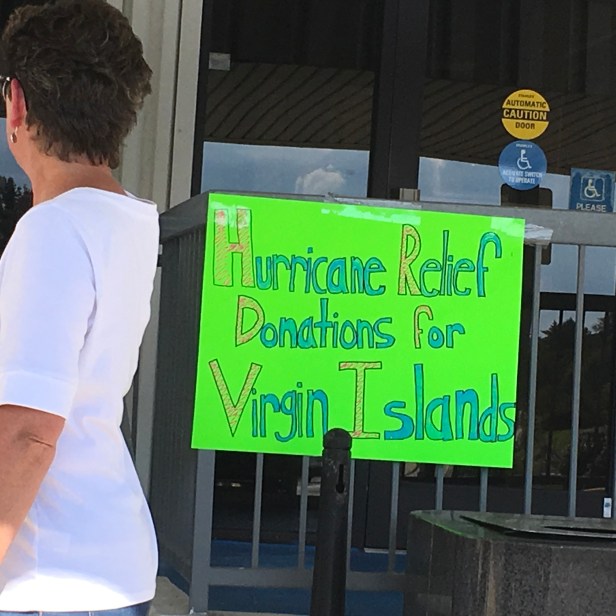 AUTOMATIC
CAUTION
DOOR
ACTIVATE SWITCH
TO OPERATE
PLEASE
Hurricane Relief
Donations for
Virgin Islands